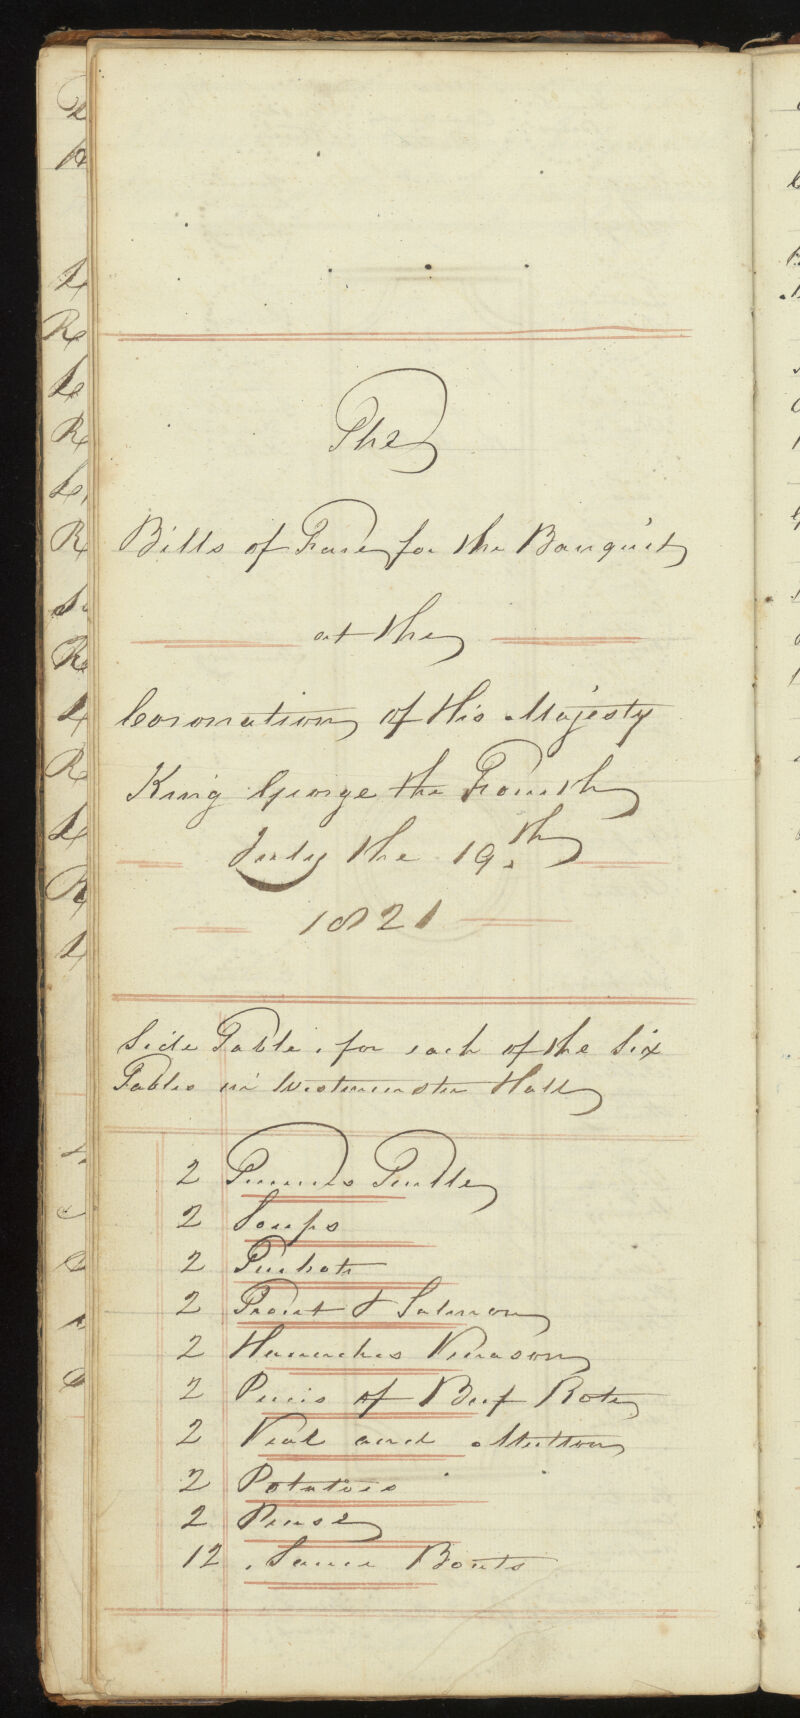 The
Bills of Fare for the Banquet
at the
Coronation of His Majesty
King George the Fourth
July the 19.th
1821
Side Table, for each of the Six
Tables in Westminster Hall
2 Tureens Turtle
2 Soups
2 Turbots
2 Trout & Salmon
2 Haunches Venason
2 Peices of Beef Rote
2 Veal and Mutton
2 Potatoes
2 Pease
12 Sauce Boats